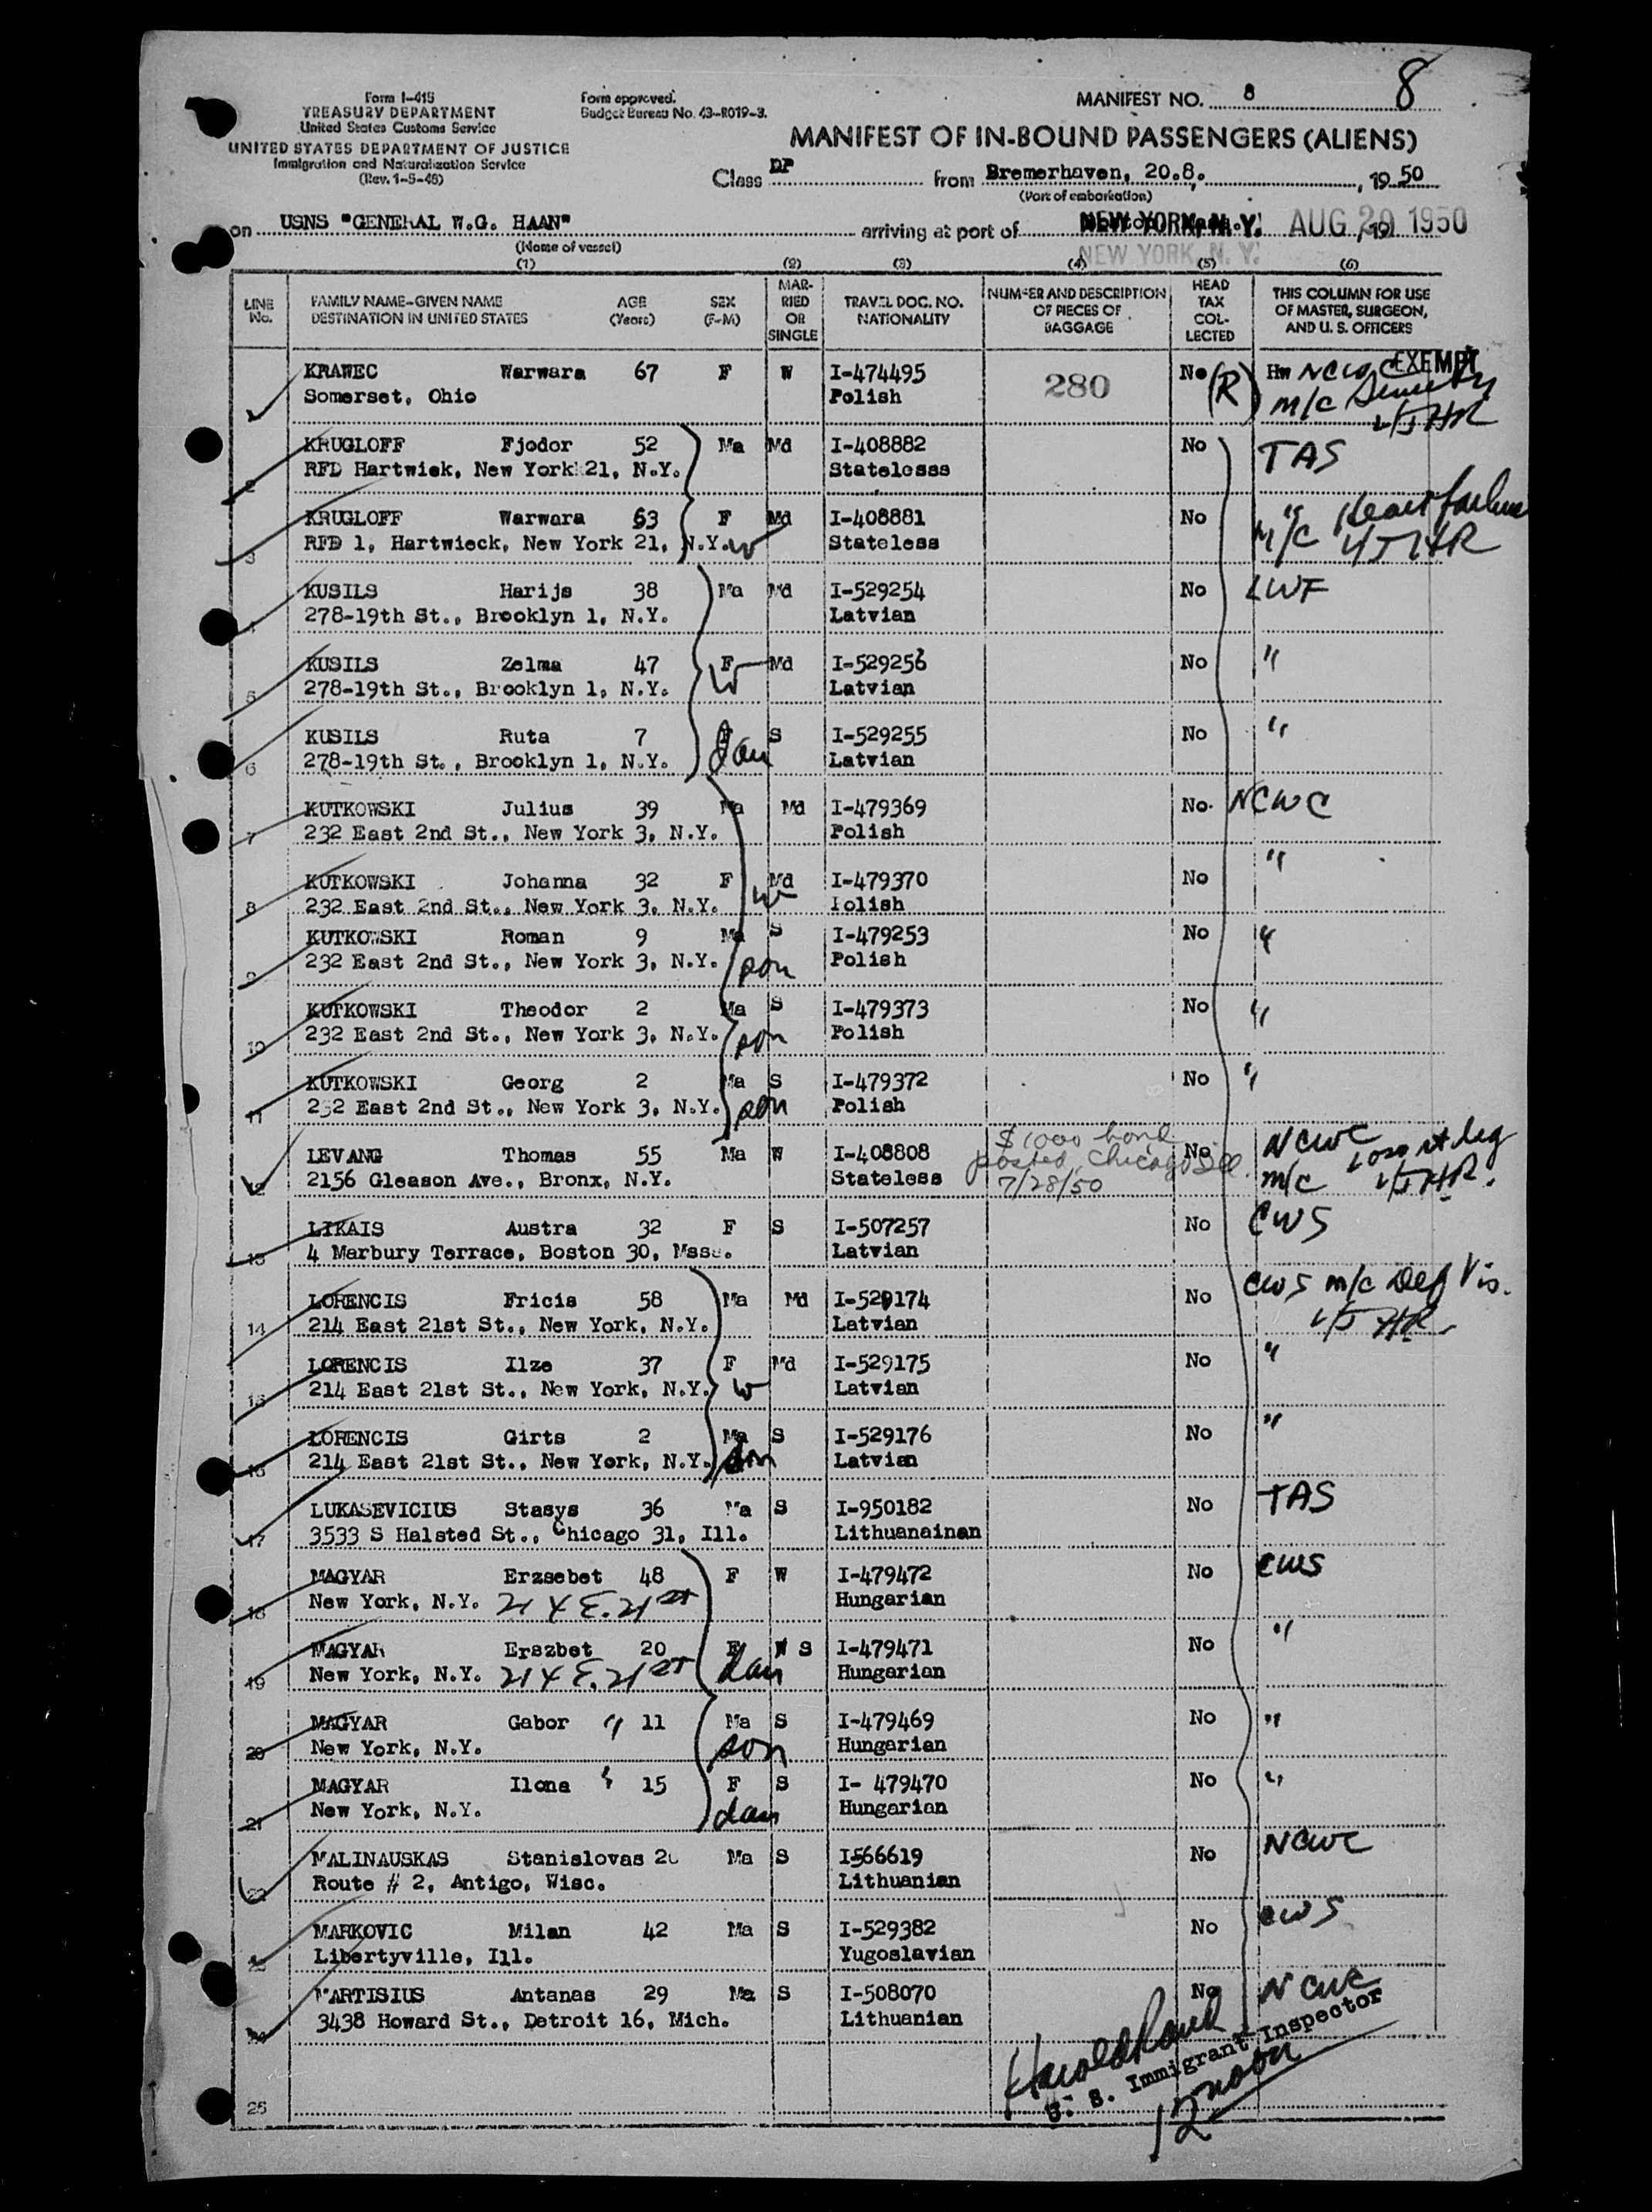 Form I-415
TREASURY DEPARTMENT
United States Customs Service
UNITED STATES DEPARTMENT OF JUSTICE
Immigration and Naturalization Service
(Rev. 1-5-48)
Form approved.
Budget Bureau No. 43-R019-3.
MANIFEST NO. 8 8
MANIFEST OF IN-BOUND PASSENGERS (ALIENS)
Class DP from Bremerhaven, 20.8. , 1950
(Port of embarkation)
on USNS "GENERAL W.G. HAAN" arriving at port of NEW YORK, N.Y. AUG 29 1950
(Name of vessel) NEW YORK, N.Y.
(1) (2) (3) (4) (5) (6)
LINE No. FAMILY NAME-GIVEN NAME DESTINATION IN UNITED STATES AGE (Years) SEX (F-M) MARRIED OR SINGLE TRAVEL DOC. NO. NATIONALITY NUMBER AND DESCRIPTION OF PIECES OF BAGGAGE HEAD TAX COLLECTED THIS COLUMN FOR USE OF MASTER, SURGEON, AND U. S. OFFICERS
KRAWEC Warwara 67 F W I-474495 280 No (R) Hw NCWC EXEMPT
Somerset, Ohio Polish m/c Senility
KRUGLOFF Fjodor 52 Ma Md I-408882 No TAS
2 RFD Hartwick, New York 21, N.Y. Statelesss
KRUGLOFF Warwara 63 F Md I-408881 No " Heart failure
3 RFD 1, Hartwieck, New York 21, N.Y. W Stateless m/c
KUSILS Harijs 38 Ma Md I-529254 No LWF
4 278-19th St., Brooklyn 1, N.Y. Latvian
KUSILS Zelma 47 F Md I-529256 No "
5 278-19th St., Brooklyn 1, N.Y. W Latvian
KUSILS Ruta 7 F S I-529255 No "
6 278-19th St., Brooklyn 1, N.Y. dau Latvian
KUTKOWSKI Julius 39 Ma Md I-479369 No. NCWC
7 232 East 2nd St., New York 3, N.Y. Polish
KUTKOWSKI Johanna 32 F Md I-479370 No "
8 232 East 2nd St., New York 3, N.Y. W Polish
KUTKOWSKI Roman 9 Ma S I-479253 No "
9 232 East 2nd St., New York 3, N.Y. son Polish
KUTKOWSKI Theodor 2 Ma S I-479373 No "
10 232 East 2nd St., New York 3, N.Y. son Polish
KUTKOWSKI Georg 2 Ma S I-479372 No "
11 232 East 2nd St., New York 3, N.Y. son Polish
LEVANG Thomas 55 Ma W I-408808 $1000 bond No NCWC
12 2156 Gleason Ave., Bronx, N.Y. Stateless posted Chicago Ill. 7/28/50 m/c Loss rt leg
LIKAIS Austra 32 F S I-507257 No CWS
13 4 Marbury Terrace, Boston 30, Mass. Latvian
LORENCIS Fricis 58 Ma Md I-529174 No CWS m/c Def Vis.
14 214 East 21st St., New York, N.Y. Latvian
LORENCIS Ilze 37 F Md I-529175 No "
15 214 East 21st St., New York, N.Y. W Latvian
LORENCIS Girts 2 Ma S I-529176 No "
16 214 East 21st St., New York, N.Y. son Latvian
LUKASEVICIUS Stasys 36 Ma S I-950182 No TAS
17 3533 S Halsted St., Chicago 31, Ill. Lithuanainan
MAGYAR Erzsebet 48 F W I-479472 No CWS
18 New York, N.Y. 214 E. 21st Hungarian
MAGYAR Erszbet 20 F S I-479471 No "
19 New York, N.Y. 214 E. 21st dau Hungarian
MAGYAR Gabor " 11 Ma S I-479469 No "
20 New York, N.Y. son Hungarian
MAGYAR Ilona " 15 F S I- 479470 No "
21 New York, N.Y. dau Hungarian
MALINAUSKAS Stanislovas Ma S I566619 No NCWC
22 Route # 2, Antigo, Wisc. Lithuanian
MARKOVIC Milan 42 Ma S I-529382 No CWS
23 Libertyville, Ill. Yugoslavian
MARTISIUS Antanas 29 Ma S I-508070 No NCWC
24 3438 Howard St., Detroit 16, Mich. Lithuanian
U. S. Immigrant Inspector
12 noon
25